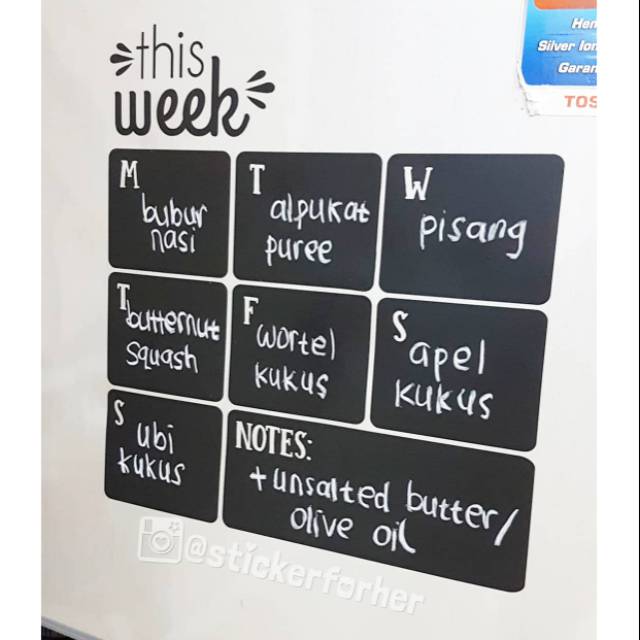 this
week
M
bubur
nasi
T
alpukat
puree
W
pisang
T
butternut
squash
F
wortel
kukus
S
apel
kukus
S
ubi
kukus
NOTES:
+ unsalted butter/
olive oil
@stickerforher
Silver Ion
Garan
TOS